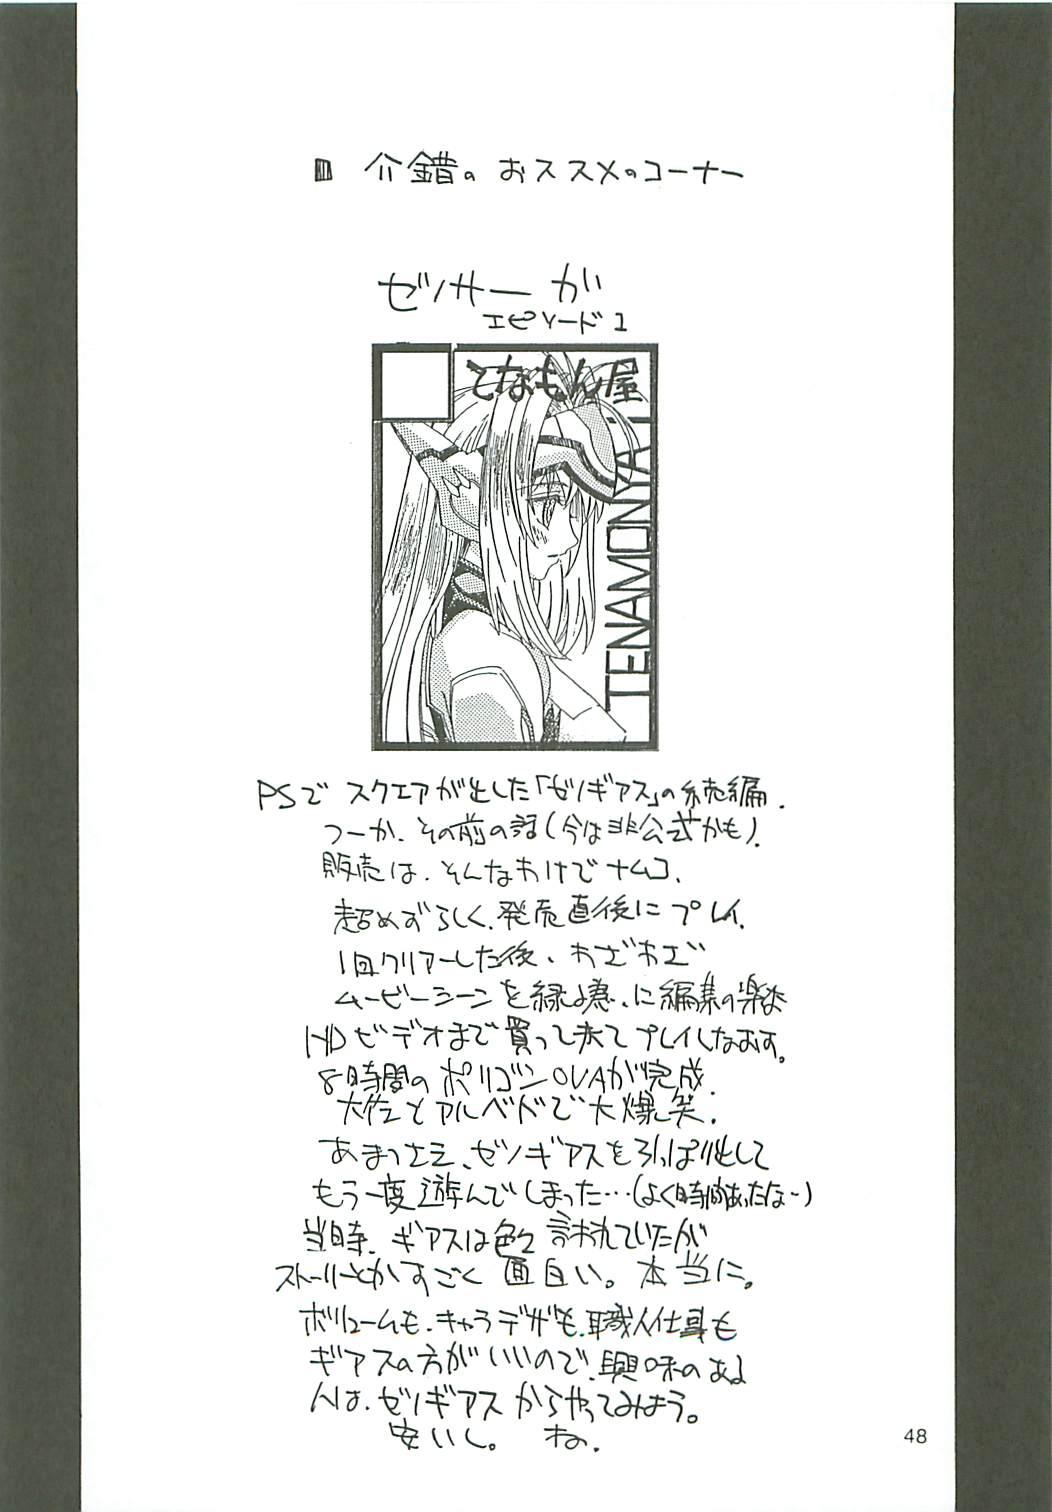 ■ 介錯の おススメのコーナー
ゼノサーガ
エピソード1
てなもん屋
TENAMONYA
PSで スクエアが出した「ゼノギアス」の続編.
つーか、その前の話(今は非公式かも).
販売は、そんなわけでナムコ.
超めずらしく、発売直後にプレイ.
1回クリアーした後、わざわざ
ムービーシーンを 編集の
HDビデオまで買って来てプレイしなおす。
8時間のポリゴンOVAが完成.
大佐とアルベドで大爆笑.
あまつさえ、ゼノギアスを引っぱり出して
もう一度遊んでしまった…(よく時間あったな~)
当時、ギアスは色々言われていたが
ストーリーとかすごく 面白い。本当に。
ボリュームも、キャラデザも、職人仕事も
ギアスの方がいいので、興味のある
人は、ゼノギアスからやってみよう。
安いし。 ね.
48